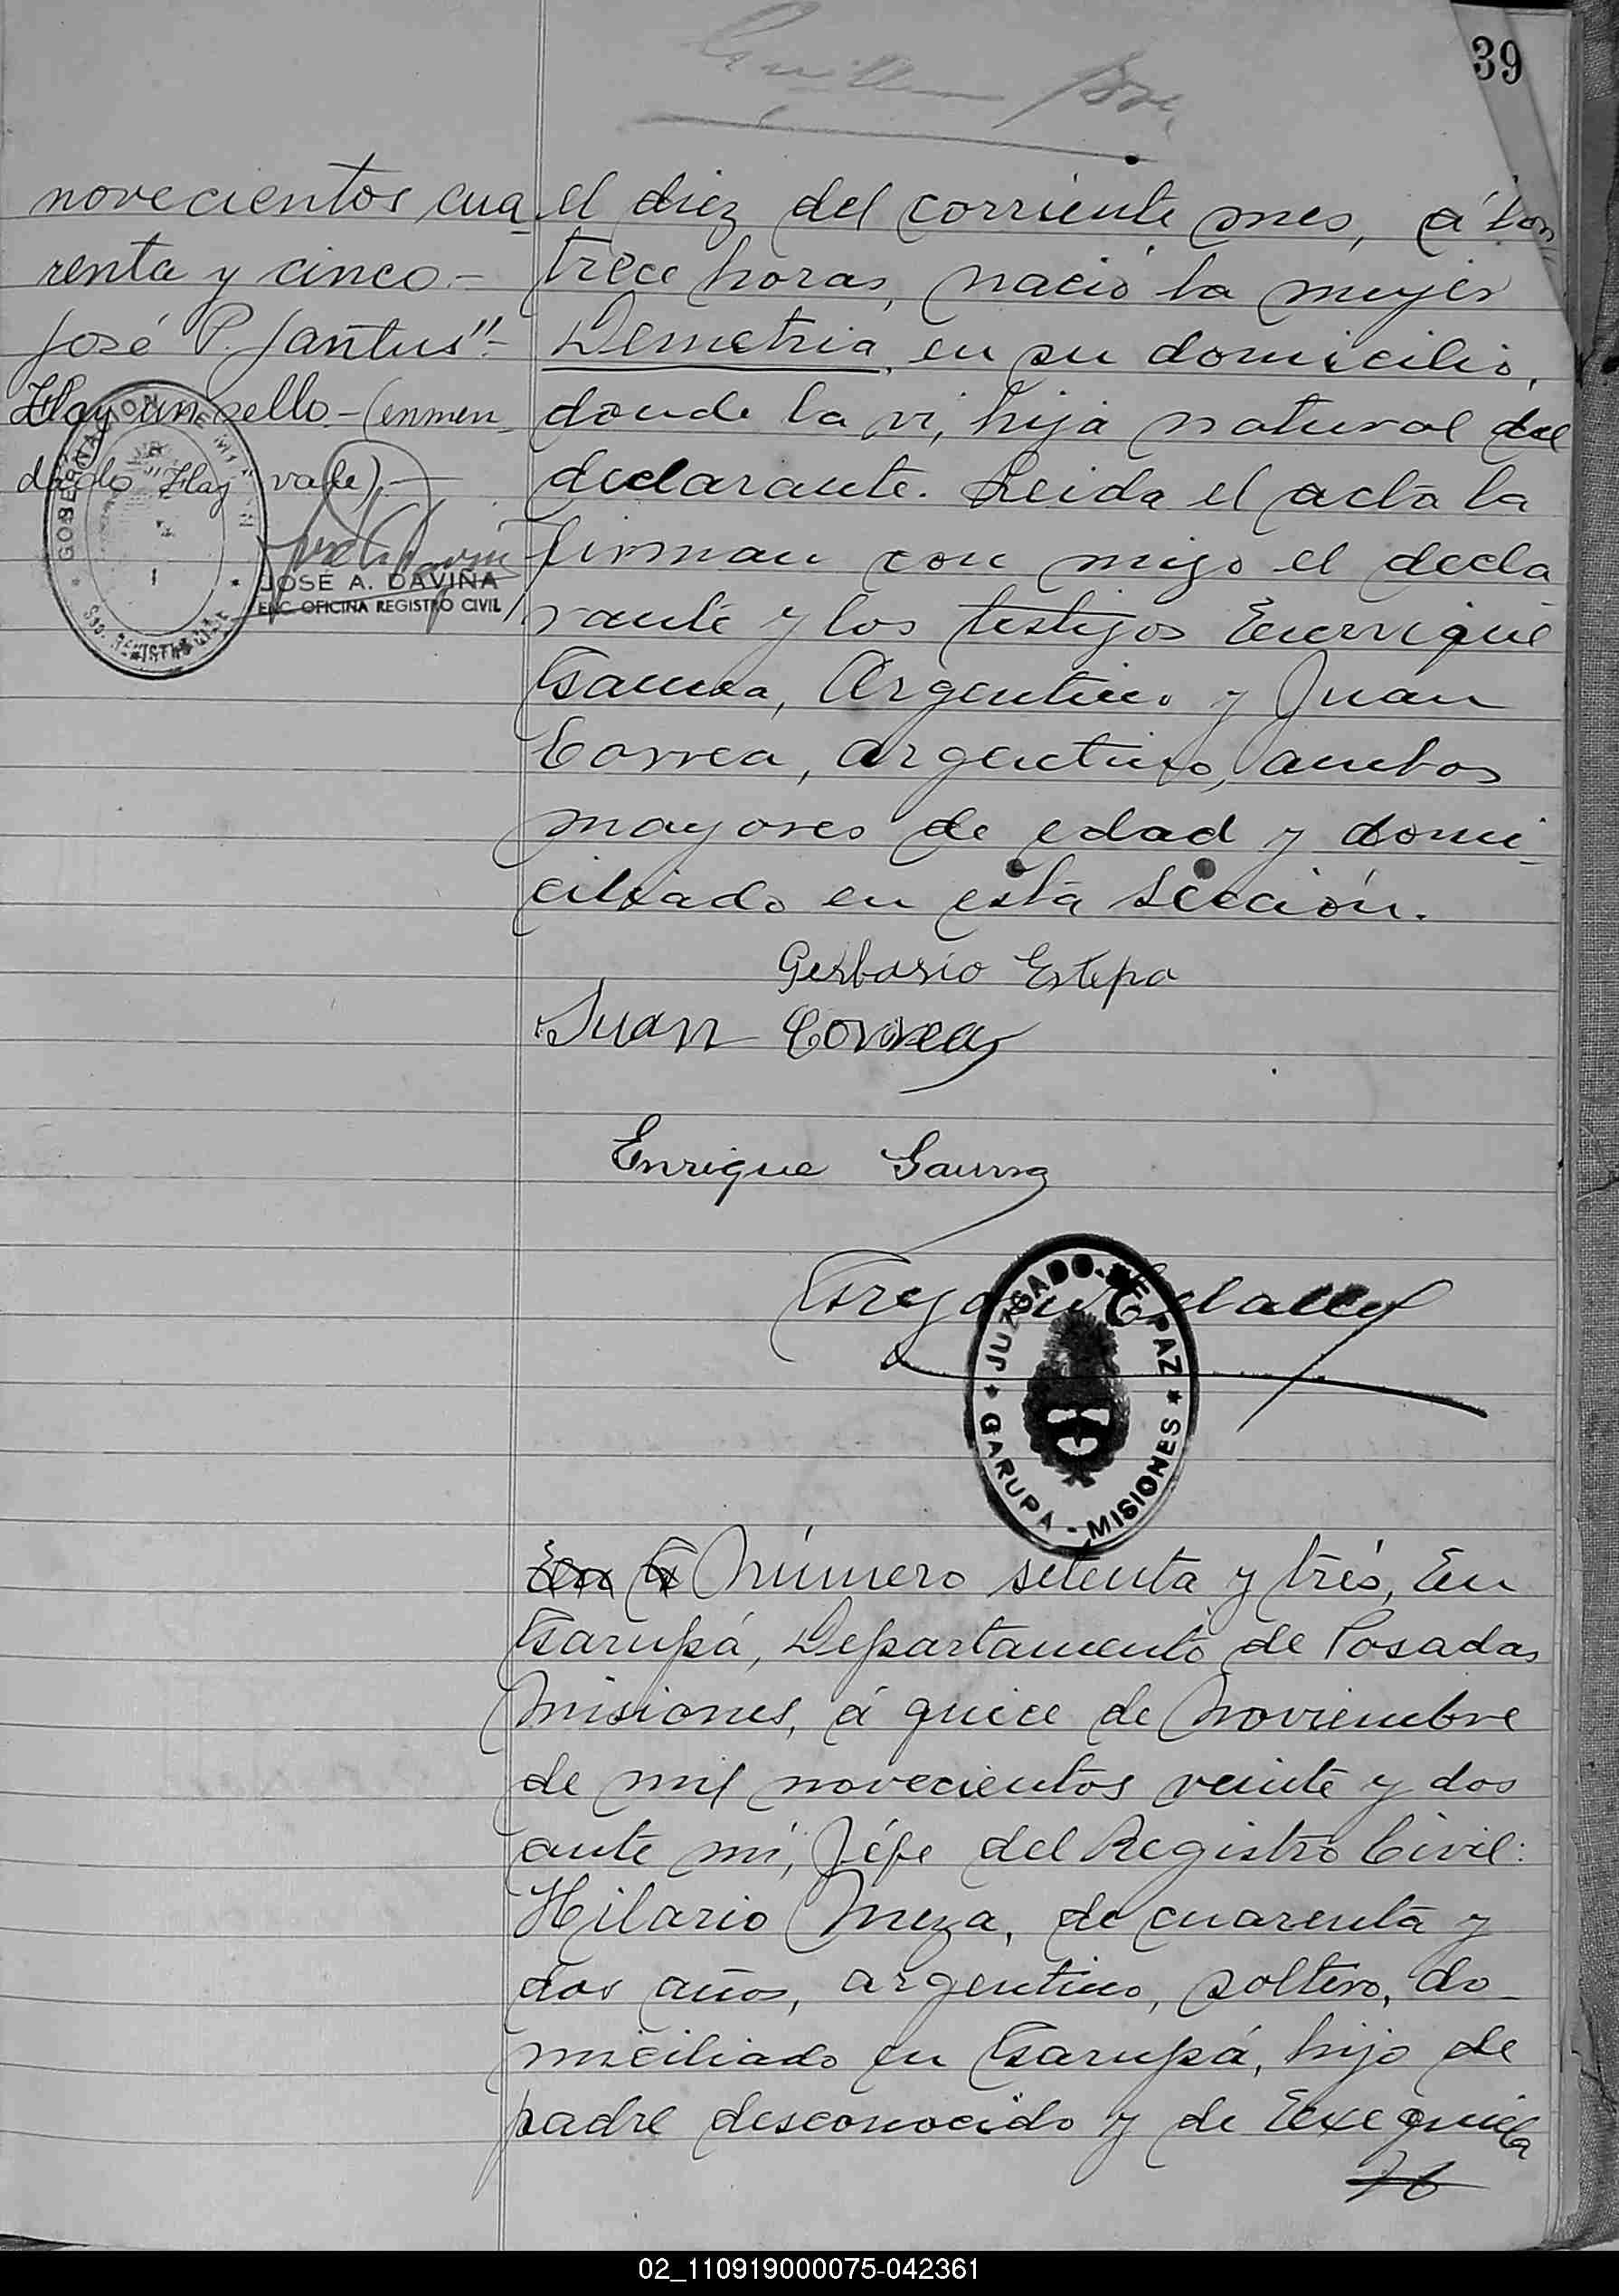 39
novecientos cua-
renta y cinco.-
José P. Jantus".-
Hay un sello.- (enmen
dado "Hay" vale).-
GOBERNACION DE MISIONES
JOSÉ A. DAVIÑA
ENC. OFICINA REGISTRO CIVIL
el diez del corriente mes, á las
trece horas, nació la mujer
Demetria, en su domicilio,
donde la vi, hija natural del
declarante. Leida el acta la
firman con migo el decla
rante y los testigos Enrrique
Gauna, Argentino y Juan
Correa, argentino, ambos
mayores de edad y domi-
ciliado en esta Sección.
Gerbasio Estepa
Juan Correa
Enrique Gauna
JUZGADO DE PAZ
GARUPA - MISIONES
Número setenta y trés, En
Garupá, Departamento de Posadas
Misiones, á quice de Noviembre
de mil novecientos veinte y dos
ante mi, Jéfe del Registro Civil:
Hilario Meza, de cuarenta y
dos años, argentino, soltero, do-
miciliado en Garupá, hijo de
padre desconocido y de Exequiela
02_110919000075-042361